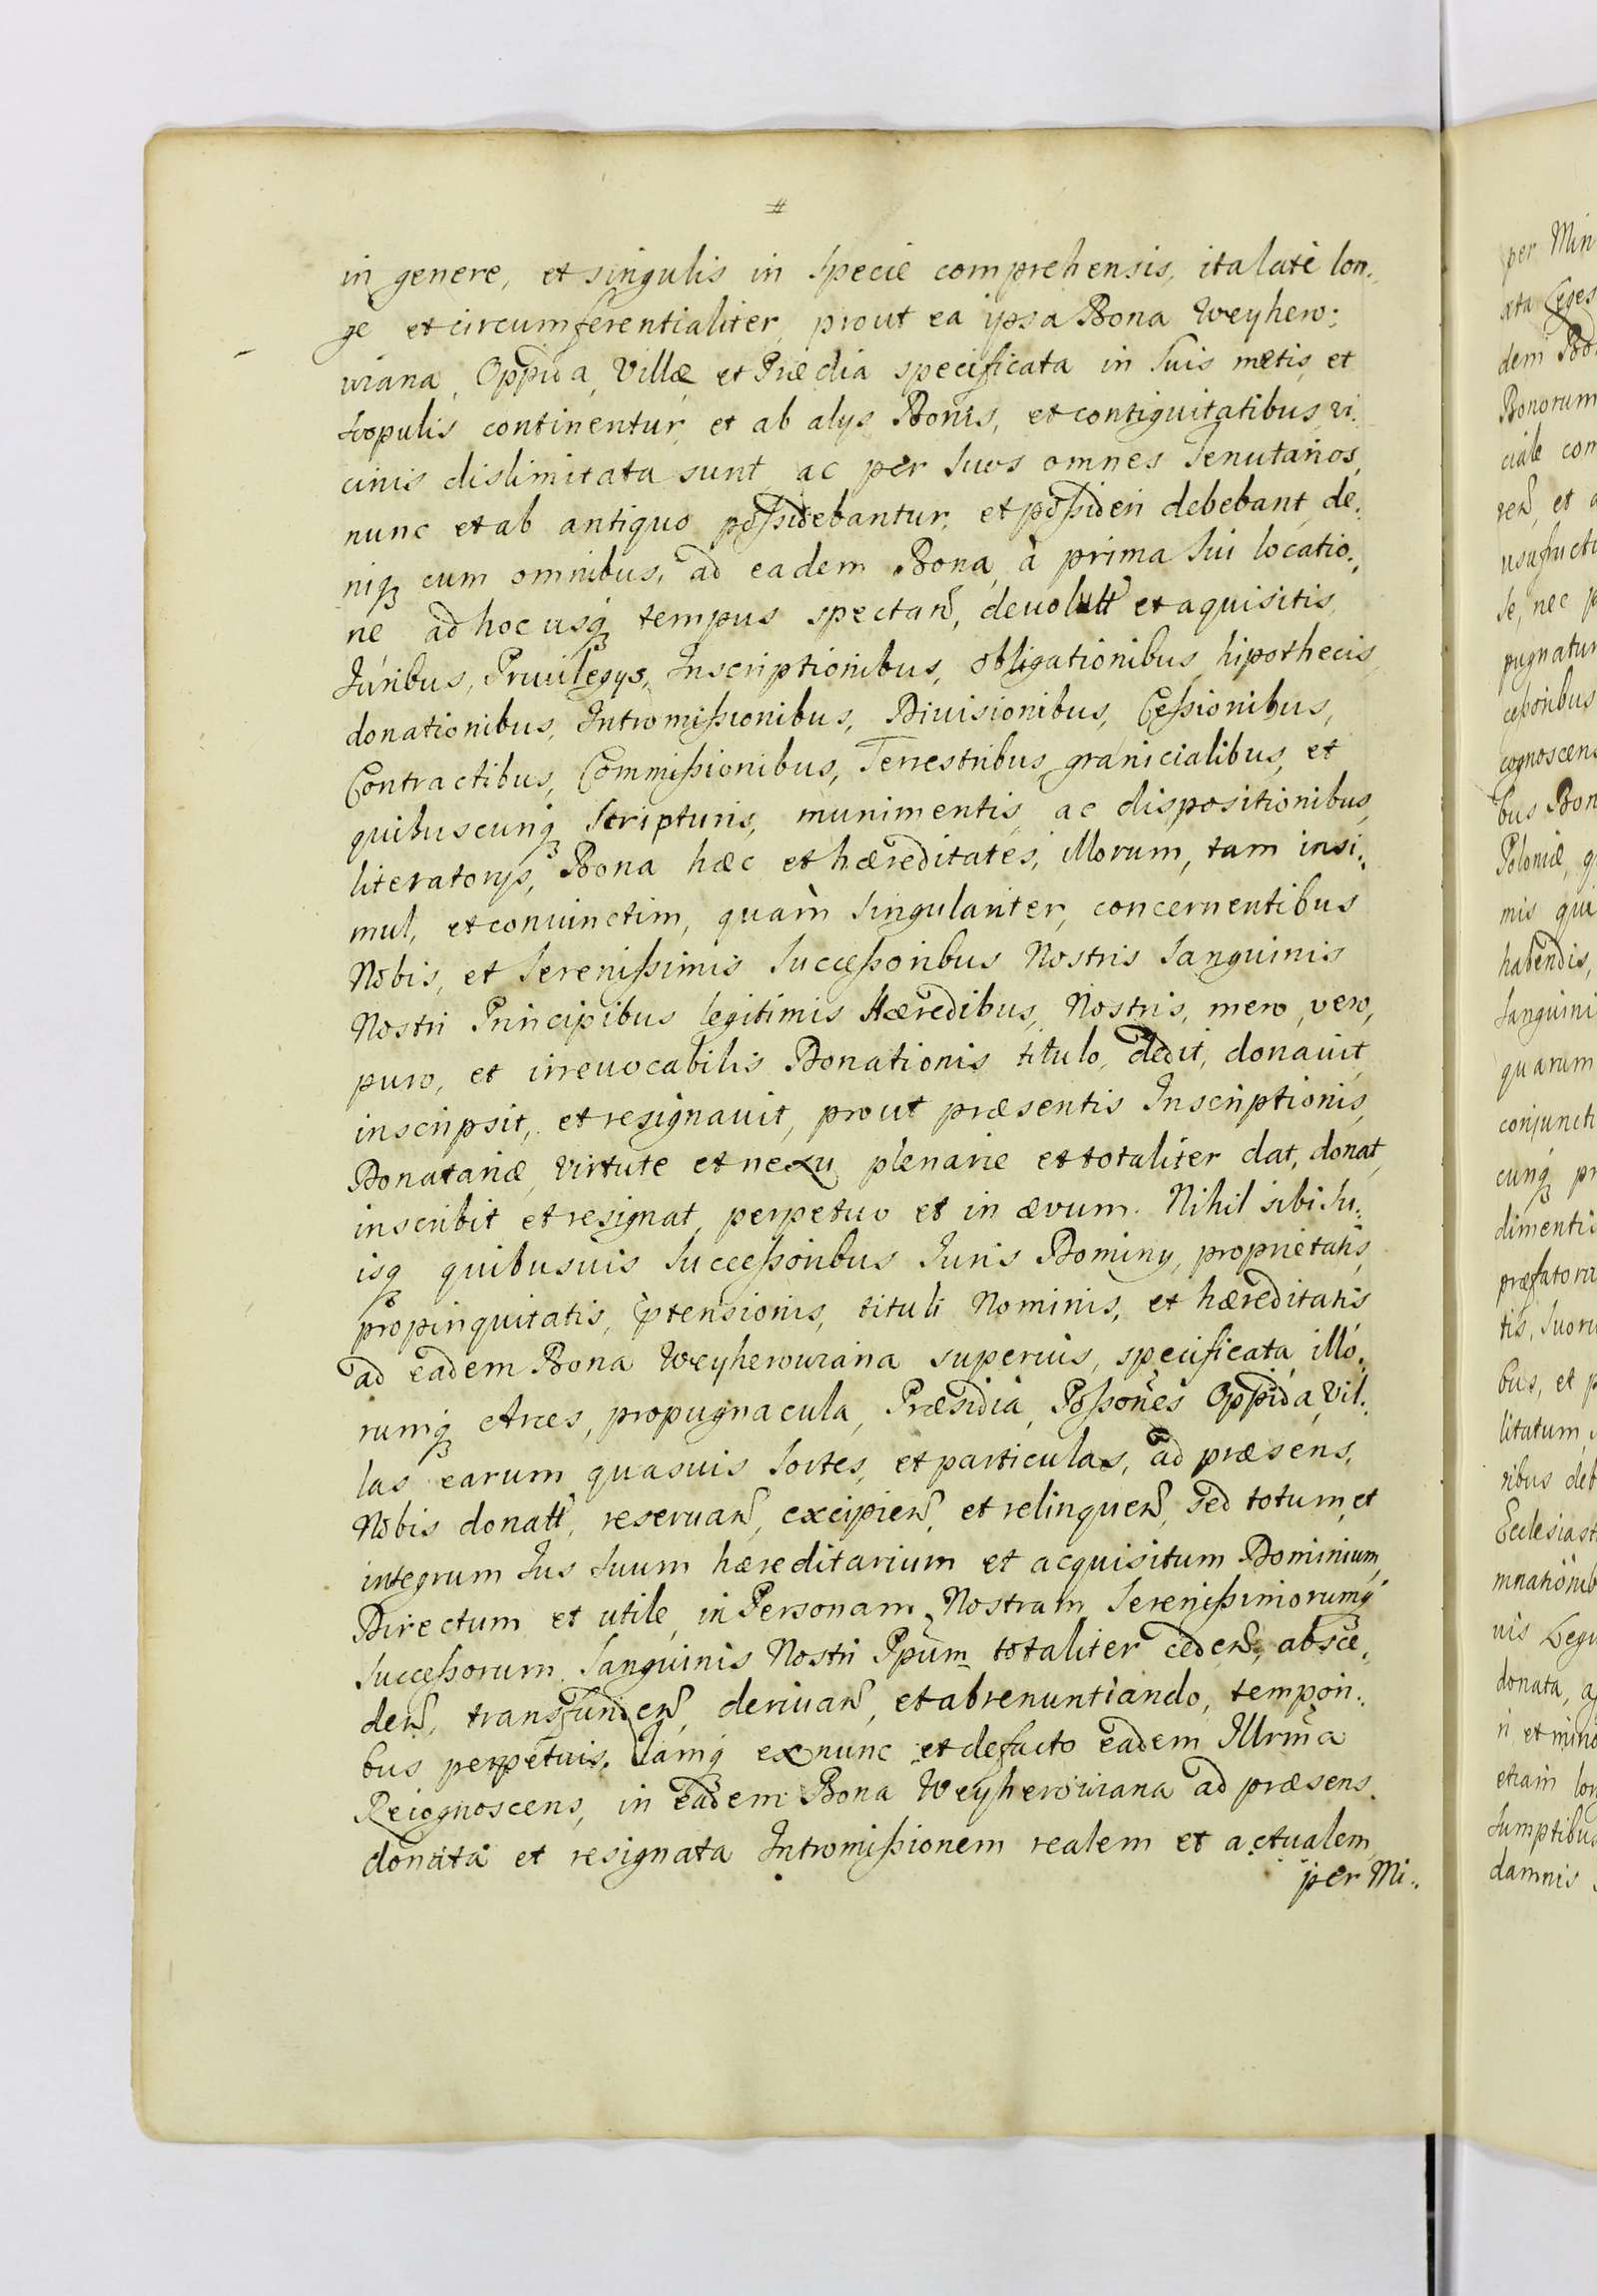 #
in genere, et singulis in specie comprehensis, ita latè lon„
ge et circumferentialiter, prout ea ipsa Bona Weyhero„
viana, Oppida, Villæ et Prædia specificata in suis metis, et
scopulis continentur, et ab alys Bonis, et contiguitatibus, vi„
cinis dislimitata sunt, ac per suos omnes Tenutarios,
nunc et ab antiquo possidebantur, et possideri debebant, de„
niqꝫ cum omnibus, ad eadem Bona, à prima sui locatio„
ne ad hoc usqꝫ tempus spectañ, devolutt et aquisitis,
Juribus, Privilegys, Inscriptionibus, obligationibus, hipothecis,
donationibus, Intromissionibus, Divisionibus, Cessionibus,
Contractibus, Commissionibus, Terrestribus, granicialibus, et
quibuscunqꝫ scripturis, munimentis, ac dispositionibus,
literatorys, Bona hæc et hæreditates, illorum, tam insi„
mul, et coniunctim, quàm singulariter, concernentibus
Nobis, et Serenissimis Successoribus Nostris Sanguinis
Nostri Principibus legitimis Hæredibus, Nostris, mero, vero,
puro, et irrevocabilis Donationis titulo, dedit, donavit,
inscripsit, et resignavit, prout præsentis Inscriptionis,
Donatariæ, virtute et nexu plenarie et totaliter dat, donat,
inscribit et resignat, perpetuo et in ævum. Nihil sibi su„
isqꝫ quibusvis Successoribus Juris Dominy, proprietatis,
propinquitatis, p̃tensionis, tituli Nominis, et hæreditatis
ad eadem Bona Weyheroviana superius, specificata, illo„
rumqꝫ Arces, propugnacula, Præsidia, Possoñes Oppida, Vil„
las earum quasvis sortes, et particulas, ad præsens,
Nobis donatt, reservañ, excipieñ, et relinqueñ, sed totum, et
integrum Jus suum hæreditarium et acquisitum Dominium,
Directum et utile, in Personam Nostram Serenissimorumqꝫ
Successorum Sanguinis Nostri Ppum̃ totaliter cedeñ, absce„
deñ, transfundeñ, derivañ, et abrenuntiando, tempori„
bus perpetuis. Jamqꝫ ex nunc et de facto eadem Illrm̃a
Recognoscens, in eadem Bona Weyheroviana ad præsens
donata et resignata Intromissionem realem et actualem,
per Mi„